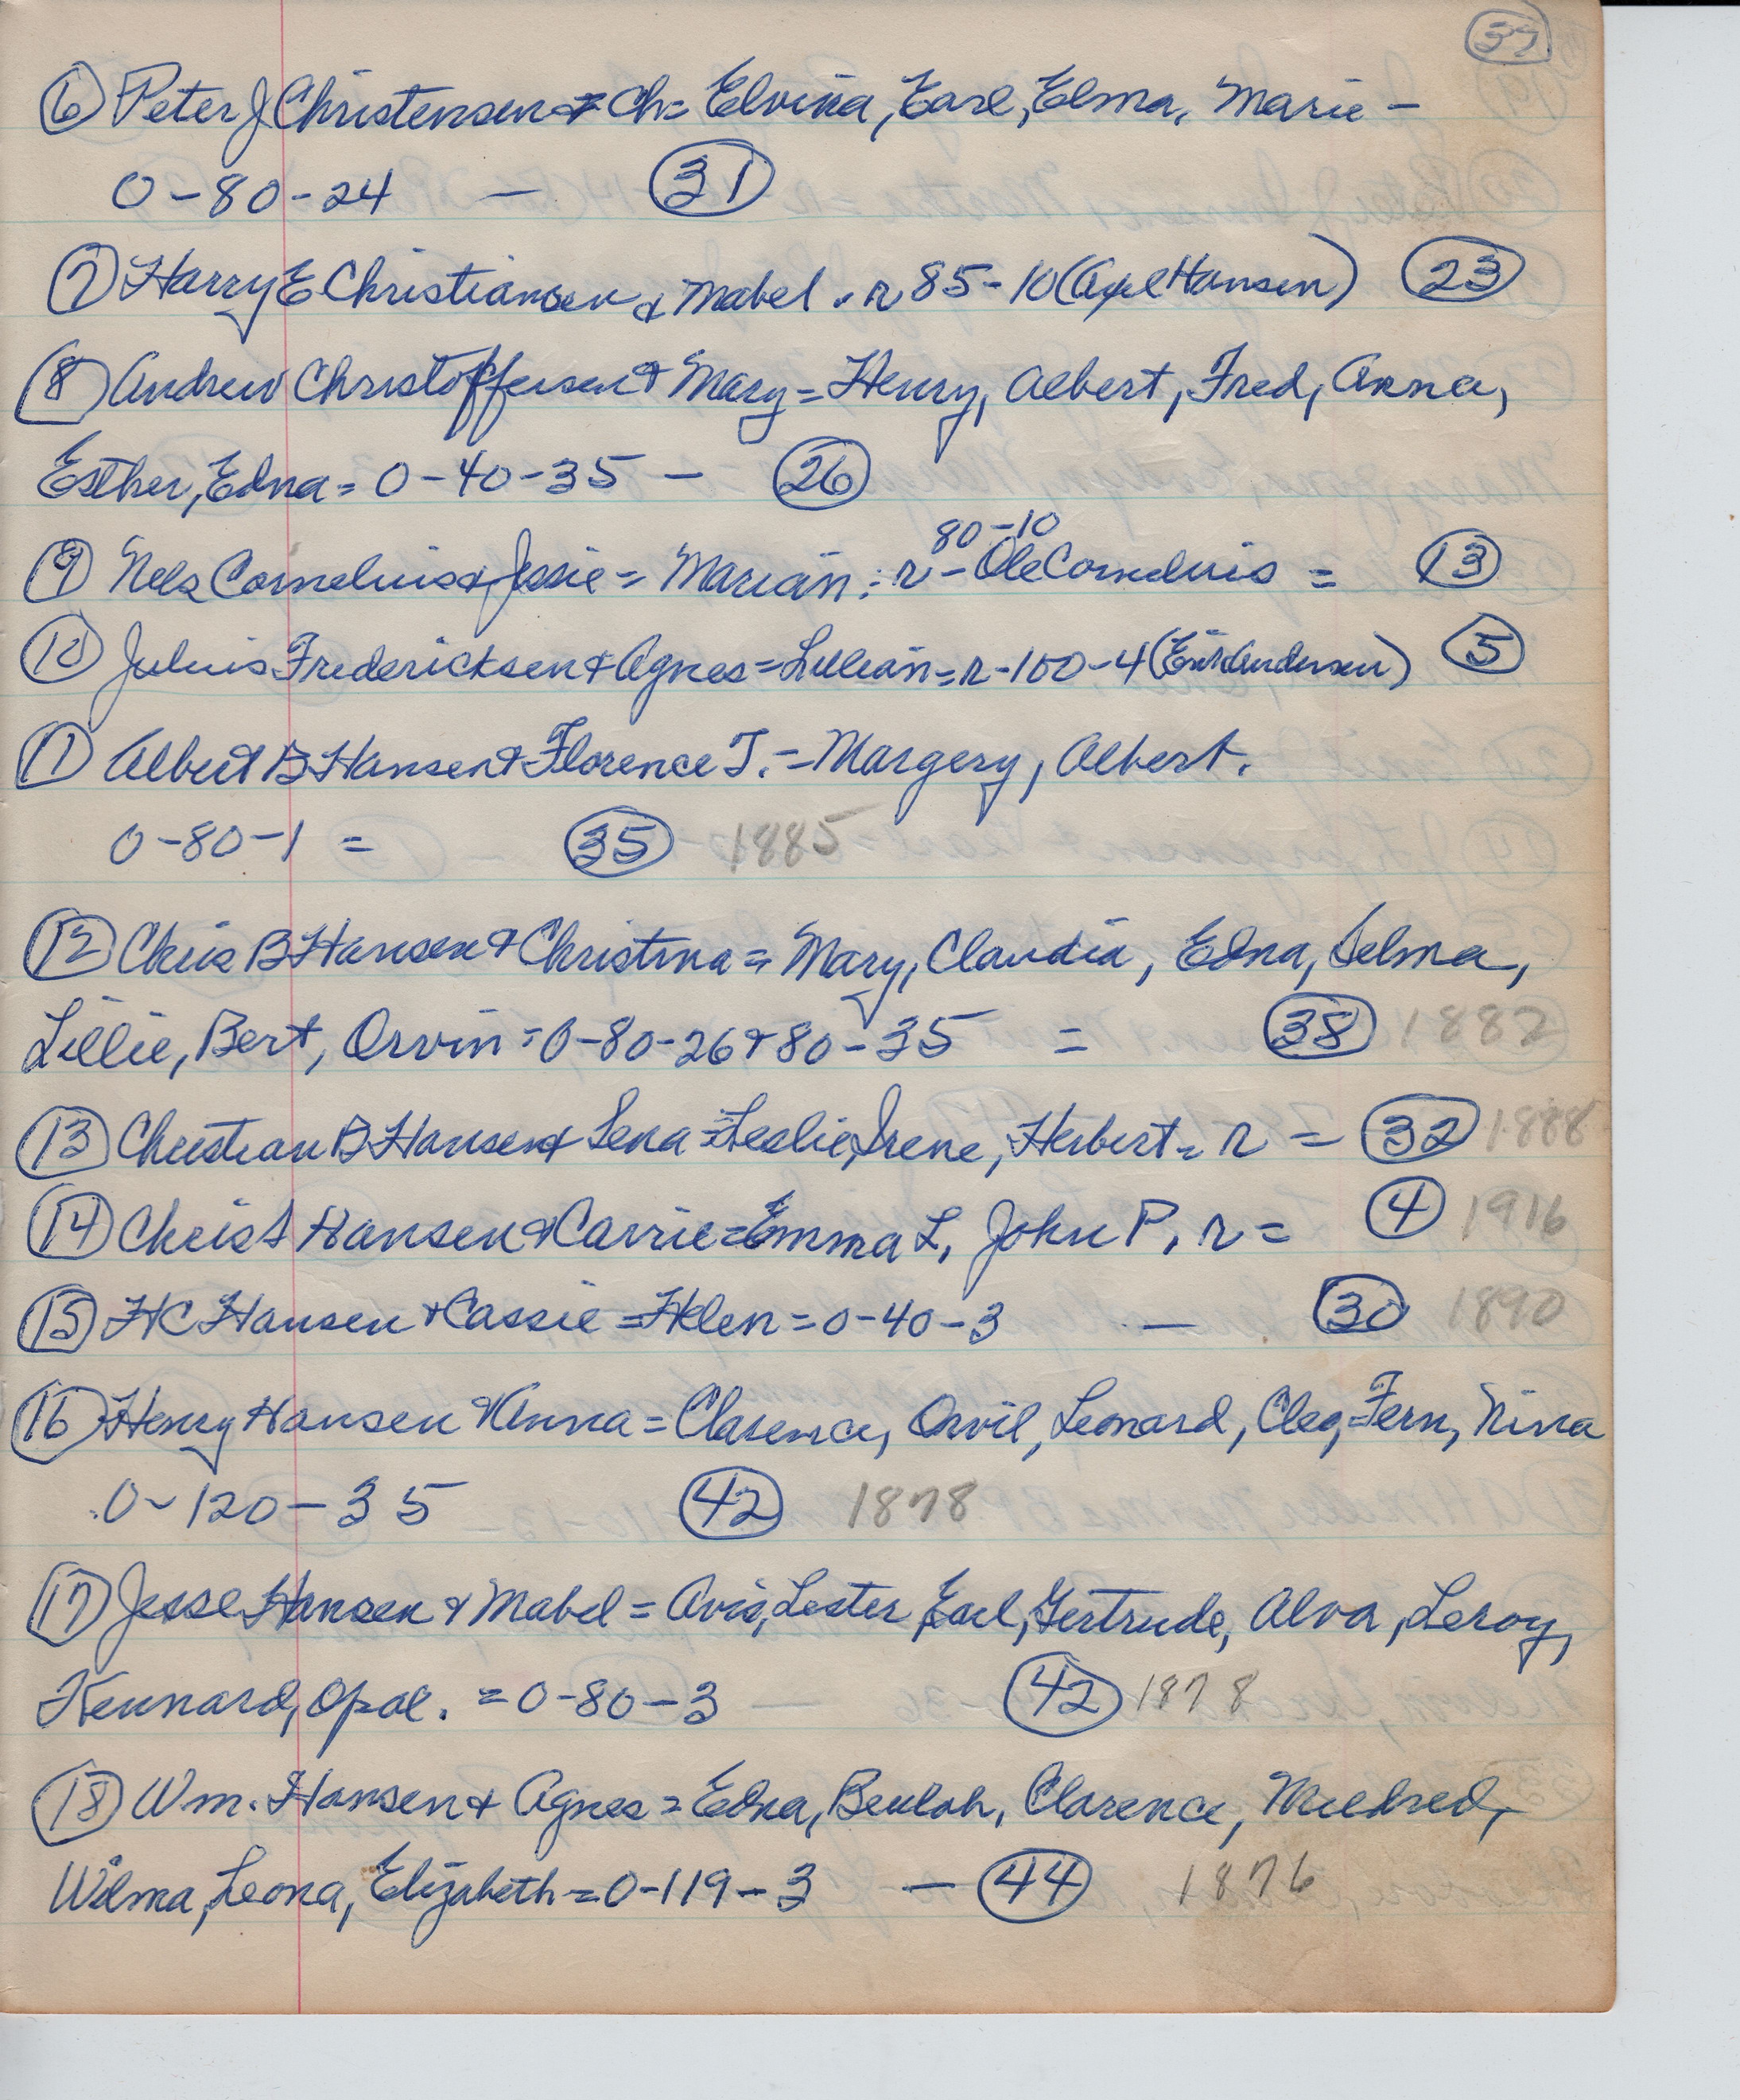 37
6 Peter J Christensen & Ch = Elvina, Earl, Elma, Marie -
0-80-24 - 31
7 Harry E Christiansen & Mabel . r 85-10 (Axel Hansen) 23
8 Andrew Christoffersen & Mary = Henry, Albert, Fred, Anna,
Esther, Edna = 0-40-35 - 26
80-10
9 Nels Cornelius & Jessie = Marian : r - Ole Cornelius = 13
10 Julius Fredericksen & Agnes = Lillian = r-100-4 (Erik Andersen) 5
11 Albert B Hansen & Florence T. = Margery, Albert.
0-80-1 = 35 1885
12 Chris B Hansen & Christina = Mary, Claudia, Edna, Selma,
Lillie, Bert, Orvin = 0-80-26 & 80-35 = 38 1882
13 Christian B Hansen & Lena = Leslie, Irene, Herbert = r = 32 1888
14 Christ Hansen & Carrie = Emma L, John P, r = 4 1916
15 HC Hansen & Cassie = Helen = 0-40-3 - 30 1890
16 Henry Hansen & Anna = Clarence, Orvil, Leonard, Cleo, Fern, Nina
0-120-35 42 1878
17 Jesse Hansen & Mabel = Avis, Lester, Earl, Gertrude, Alva, Leroy,
Kennard, Opal. = 0-80-3 42 1878
18 Wm. Hansen & Agnes = Edna, Beulah, Clarence, Mildred,
Wilma, Leona, Elizabeth = 0-119-3 - 44 1876